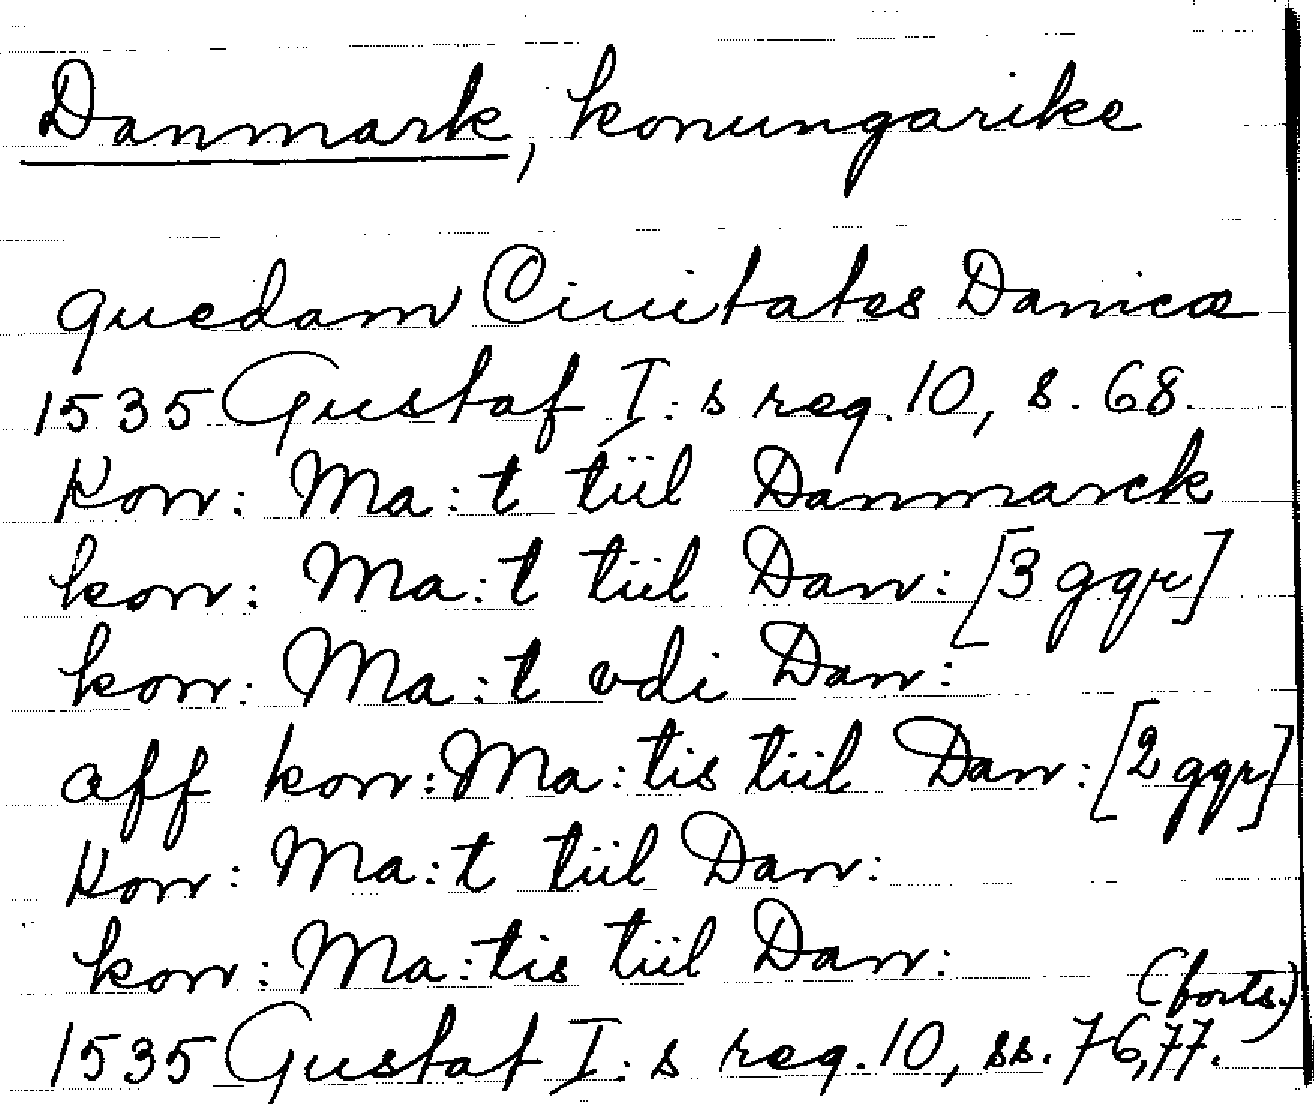 Danmark, konungarike
quedam Ciuitates Danicæ
1535 Gustaf I:s reg. 10, s. 68.
Kon: Ma:t tiil Danmarck
kon: Ma:t tiil Dan: [3 ggr]
kon: Ma:t vdi Dan:
aff kon: Ma:tis tiil Dan: [2 ggr]
Kon: Ma:t tiil Dan:
kon: Ma:tis tiil Dan:
(forts.)
1535 Gustaf I:s reg. 10, ss. 76, 77.